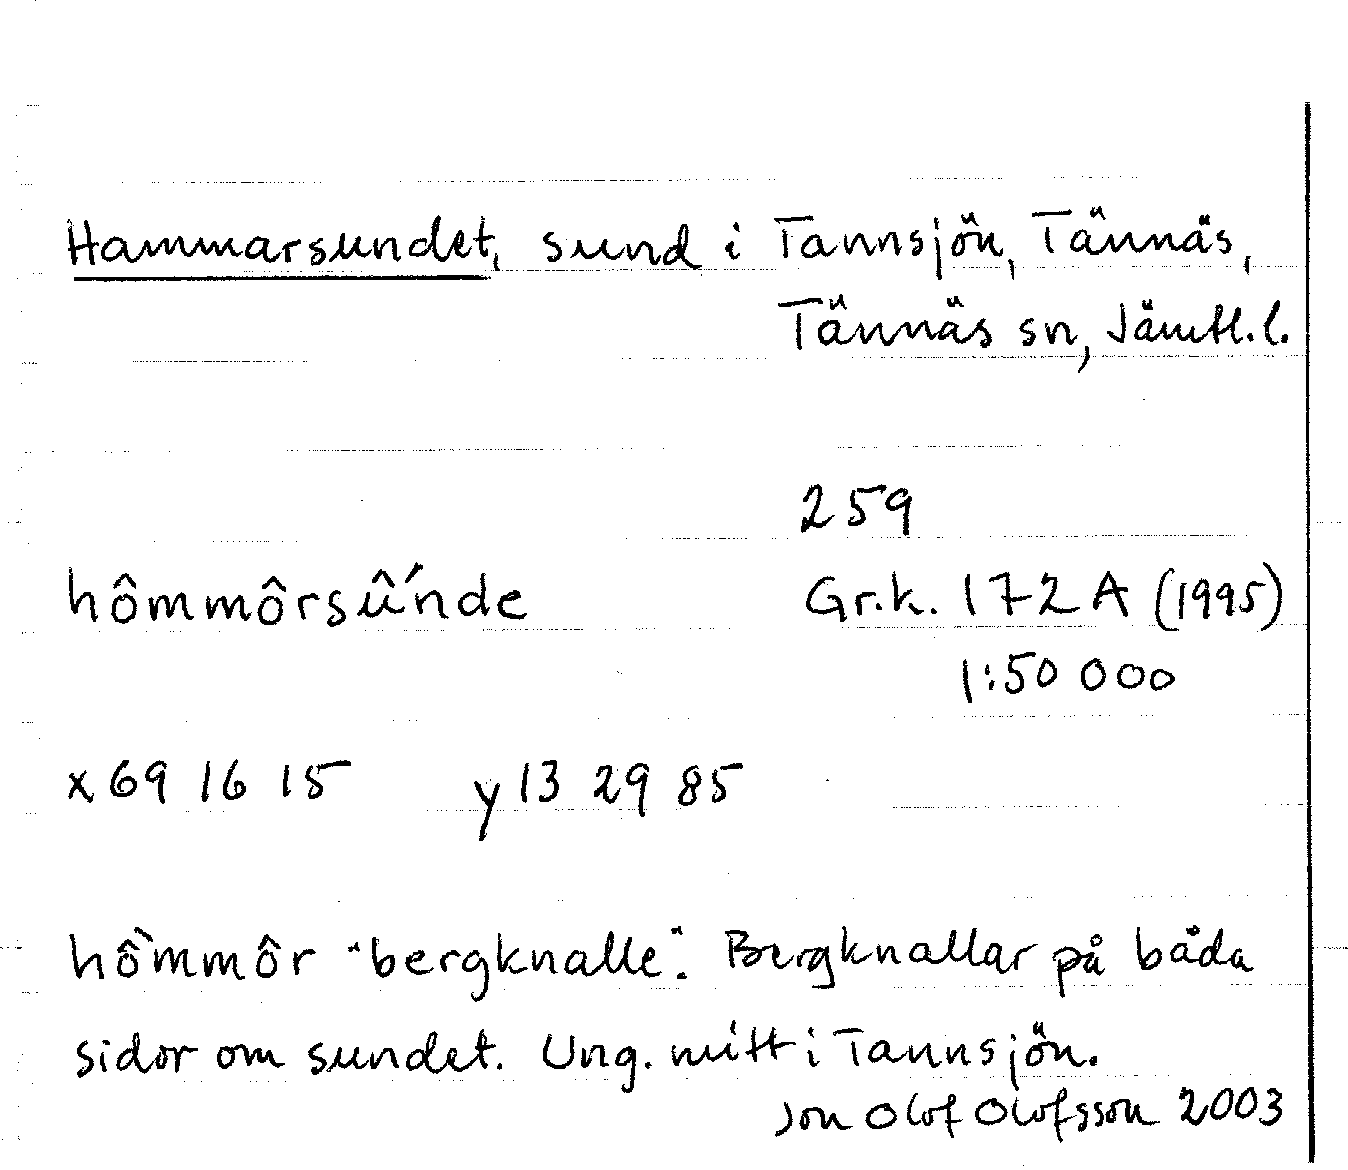 Hammarsundet, sund i Tannsjön, Tännäs,
Tännäs sn, Jämtl.l.
259
hômmôrsû´nde Gr.k. 172 A (1995)
1:50 000
x 69 16 15 y 13 29 85
hô`mmôr "bergknalle". Bergknallar på båda
sidor om sundet. Ung. mitt i Tannsjön.
Jon Olof Olofsson 2003